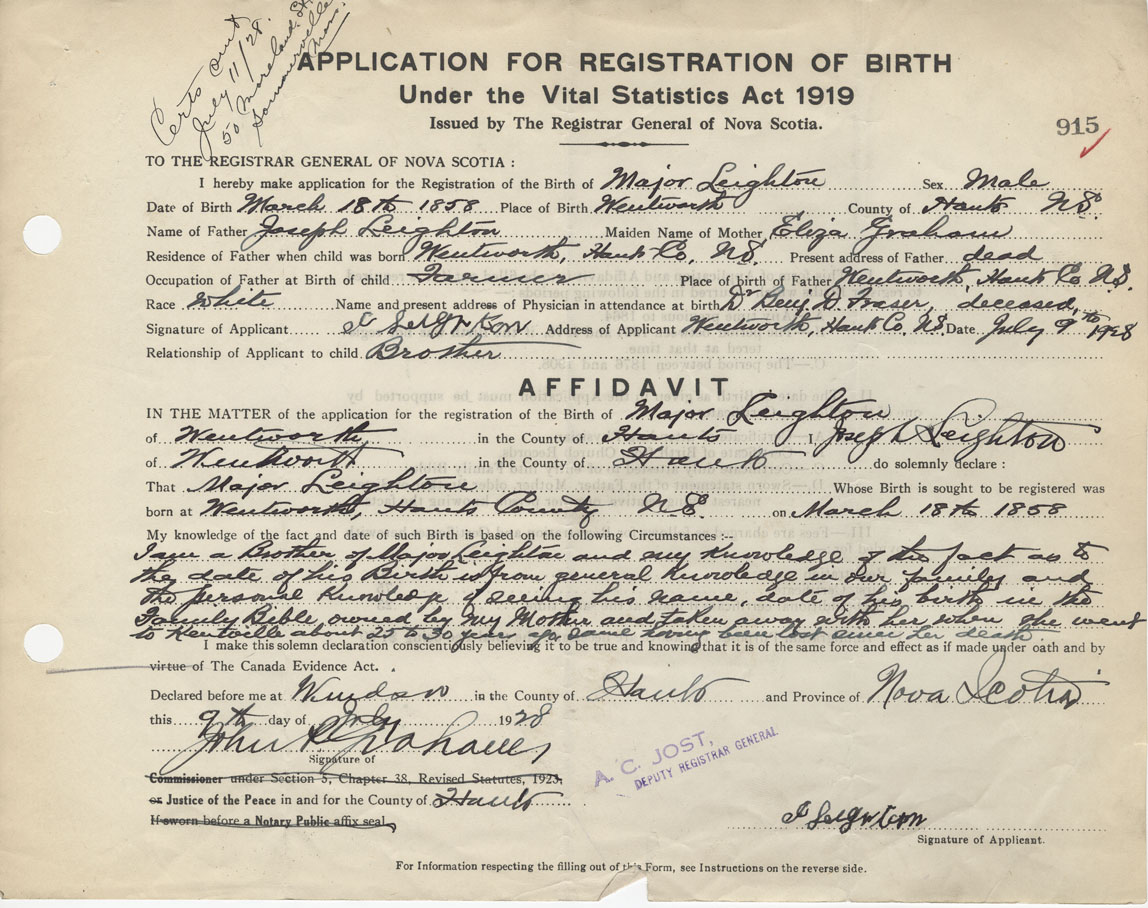 Certs sent
July 11/28.
50 Moreland St.
Sommerville
Mass.
APPLICATION FOR REGISTRATION OF BIRTH
Under the Vital Statistics Act 1919
Issued by The Registrar General of Nova Scotia.
915
TO THE REGISTRAR GENERAL OF NOVA SCOTIA :
I hereby make application for the Registration of the Birth of Major Leighton Sex Male
Date of Birth March 18th 1858 Place of Birth Wentworth County of Hants N.S.
Name of Father Joseph Leighton Maiden Name of Mother Eliza Graham
Residence of Father when child was born Wentworth, Hants Co, N.S. Present address of Father dead
Occupation of Father at Birth of child Farmer Place of birth of Father Wentworth, Hants Co N.S.
Race White Name and present address of Physician in attendance at birth Dr Benj. D Fraser, deceased,
Signature of Applicant J Leighton Address of Applicant Wentworth, Hants Co. N.S. Date July 9th 1928
Relationship of Applicant to child Brother
AFFIDAVIT
IN THE MATTER of the application for the registration of the Birth of Major Leighton
of Wentworth, in the County of Hants I, Joseph Leighton
of Wentworth in the County of Hants do solemnly declare :
That Major Leighton Whose Birth is sought to be registered was
born at Wentworth, Hants County N.S. on March 18th 1858
My knowledge of the fact and date of such Birth is based on the following Circumstances :--
I am a Brother of Major Leighton and my knowledge of the fact as to
the date of his Birth is from general knowledge in our family and
the personal knowledge of seeing his name, date of his birth in the
Family Bible, owned by my Mother and taken away with her when she went
to Kentville about 25 to 30 years ago, same having been lost since her death
I make this solemn declaration conscientiously believing it to be true and knowing that it is of the same force and effect as if made under oath and by
virtue of The Canada Evidence Act.
Declared before me at Windsor in the County of Hants and Province of Nova Scotia
this 9th day of July 1928
John Graham,
Signature of
Commissioner under Section 5, Chapter 38, Revised Statutes, 1923,
or Justice of the Peace in and for the County of Hants
If sworn before a Notary Public affix seal,
A. C. JOST,
DEPUTY REGISTRAR GENERAL
J Leighton
Signature of Applicant.
For Information respecting the filling out of this Form, see Instructions on the reverse side.